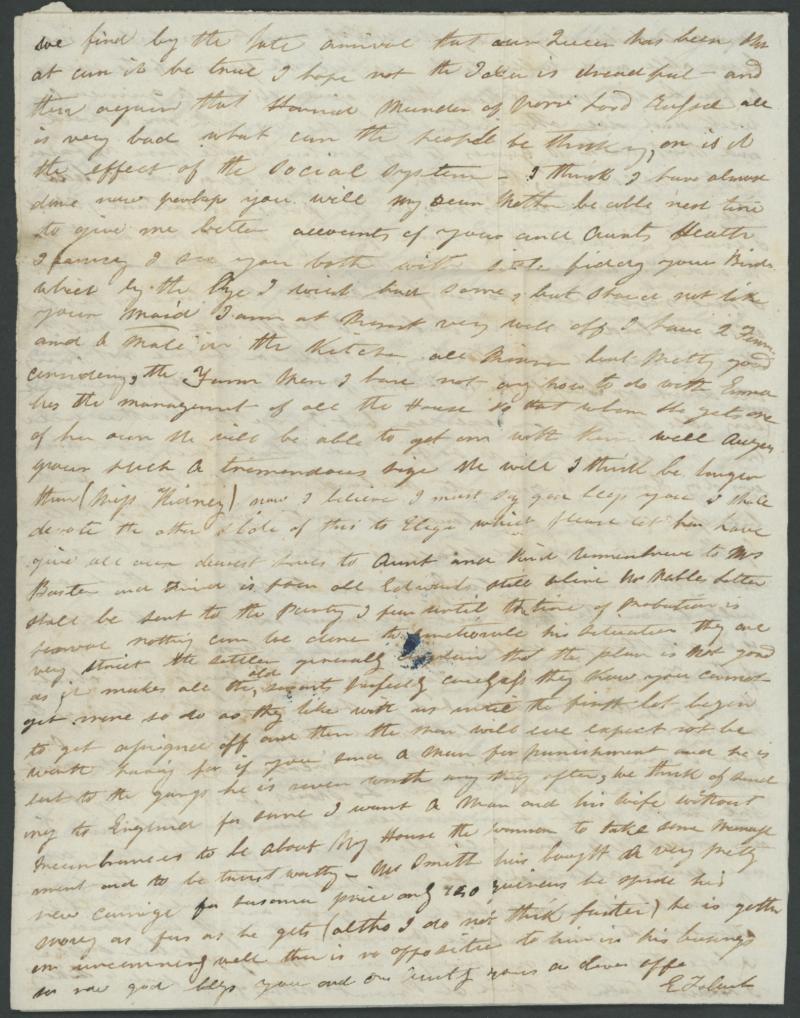 we find by the late arrival that our Queen has been shot
at can it be true I hope not the Idea is dreadful - and
then again that Horrid Murder of poor Lord Russel all
is very bad what can the people be thinking, on is it
the effect of the social system - I think I have almost
done now perhaps you will my dear Mother be able next time
to give me better accounts of your and Aunts Health
I fancy I see you both with little fidery your Birds
which by the bye I would had some, but should not like
your Maid I am at present very well off I have 2 Fem
and 1 Male in the Kitchen all Prison but pretty good
considering, the Farm Men I have not any now to do with Emma
has the management of all the House so that when she gets one
of her own she will be able to get on with them well
grows such a tremendous size she will I think be larger
than (Miss Kidney) now I believe I must say god bless you I shall
devote the other side of this to Eliza which please let her have
give all our dearest loves to Aunt and kind remembrance to Mrs
and is poor old Edwards still alive Mr letter
shall be sent to the Party I fear until the time of Probation is
nothing can be done to his situation they are
very strict the settlers generally complain that the plan is not good
as it makes all the old servants perfectly careless they know you cannot
get more so do as they like with us until the first lot begin
to get assigned off and then the men will we expect not be
worth having for if you send a man for punishment and he is
sent to the gangs he is never worth any thing after, we think of send
ing to England for some I want a man and his wife without
incumbrances to be about my House the woman to take some manage
ment and to be trust worthy - Mr Smith has bought a very pretty
new carriage for price only 120 guineas he spends his
money as fas as he gets (altho I do not think faster) he is getting
on uncommonly well there is no opposition to him in his business
so now god bless you and yours as does